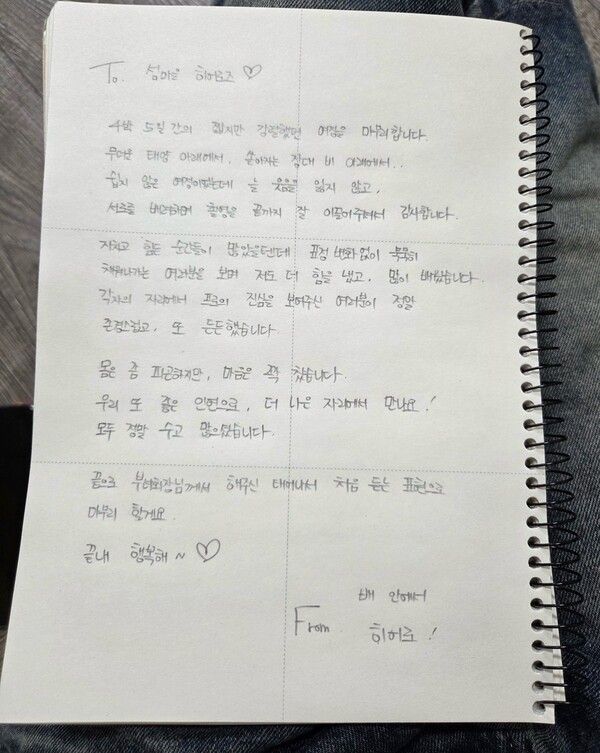 To. 섬마을 히어로즈 ♡
4박 5일간의 짧지만 강렬했던 여정을 마무리합니다.
무더운 태양 아래에서, 쏟아지는 장대 비 아래에서..
쉽지 않은 여정이었는데 늘 웃음을 잃지 않고,
서로를 배려하며 촬영을 끝까지 잘 이끌어주셔서 감사합니다.
지치고 힘든 순간들이 많았을텐데 표정 변화 없이 묵묵히
채워나가는 여러분을 보며 저도 더 힘을 냈고, 많이 배웠습니다.
각자의 자리에서 프로의 진심을 보여주신 여러분이 정말
존경스럽고, 또 든든했습니다
몸은 좀 피곤하지만, 마음은 꽉 찼습니다.
우리 또 좋은 인연으로, 더 나은 자리에서 만나요!
모두 정말 수고 많으셨습니다.
끝으로 부녀회장님께서 해주신 태어나서 처음 듣는 표현으로
마무리 할게요.
끝내 행복해~ ♡
배 안에서
From. 히어로!